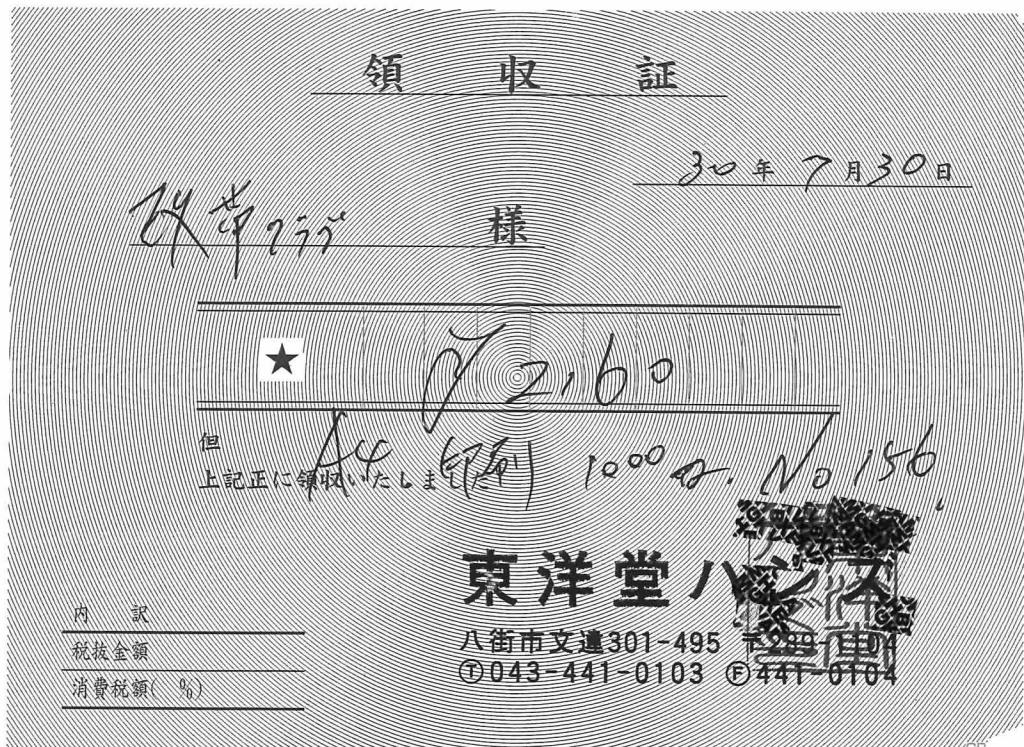 領収証
30年7月30日
様
★ ¥2,160
但 A4 印刷 1000 No 156
上記正に領収いたしました
東洋堂ハンズ
八街市文違301-495 〒289-1104
Ⓣ043-441-0103 Ⓕ441-0104
内訳
税抜金額
消費税額( %)